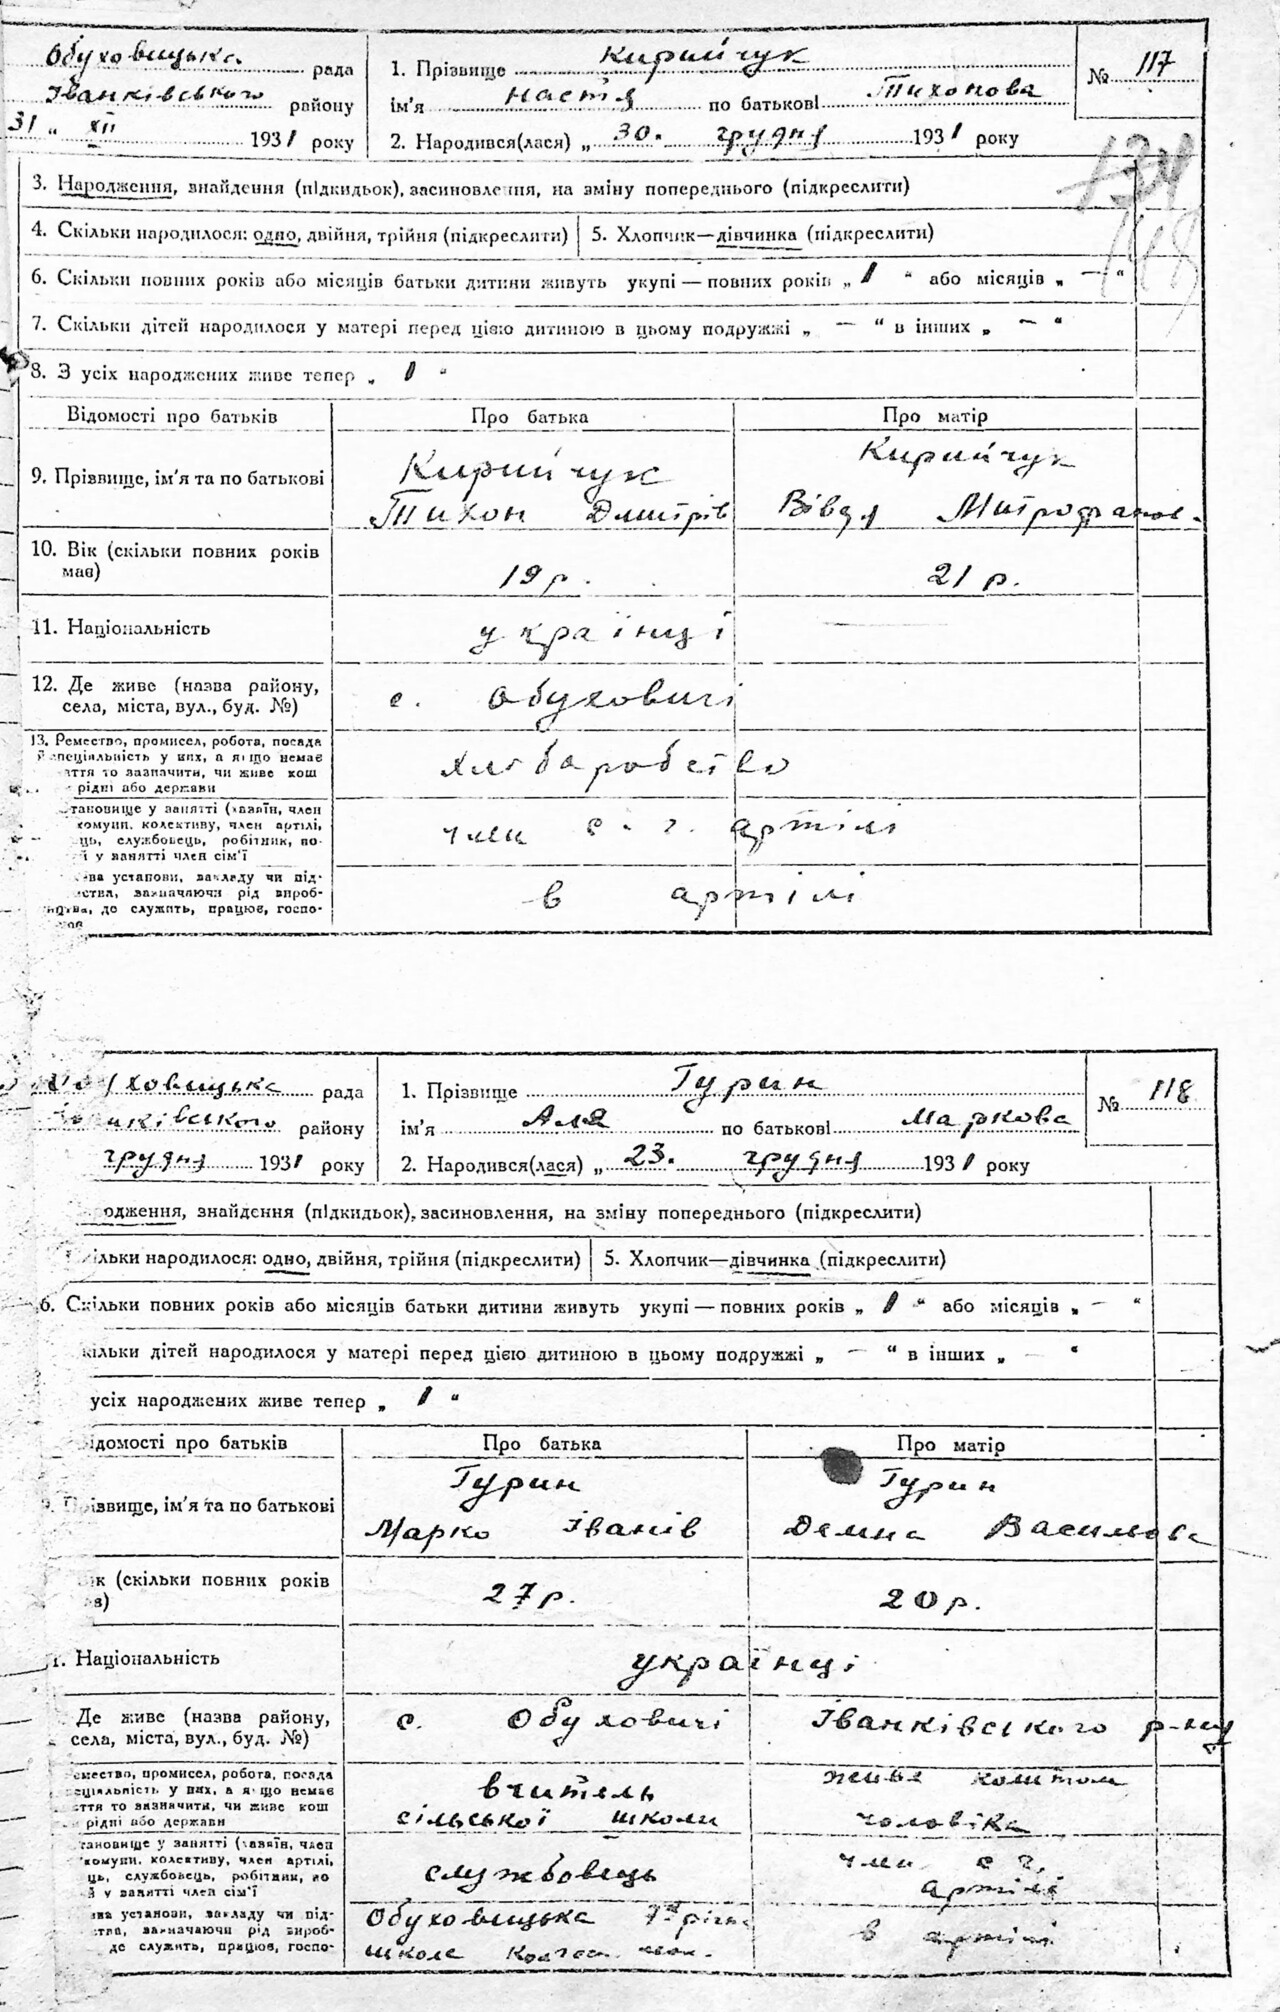 Обуховицька рада
Іванківського району
31 „ XII 1931 року
1. Прізвище Кирийчук
ім'я Настя по батькові Тихонова
2. Народився(лася) „ 30. грудня 1931 року
№ 117
3. Народження, знайдення (підкидьок), засиновлення, на зміну попереднього (підкреслити)
4. Скільки народилося: одно, двійня, трійня (підкреслити) 5. Хлопчик—дівчинка (підкреслити)
6. Скільки повних років або місяців батьки дитини живуть укупі — повних років „ 1 “ або місяців „ — “
7. Скільки дітей народилося у матері перед цією дитиною в цьому подружжі „ — “ в інших „ — “
8. З усіх народжених живе тепер „ 1 “
Відомості про батьків Про батька Про матір
9. Прізвище, ім'я та по батькові
Кирийчук
Тихон Дмитрів
Кирийчук
Вівдя Митрофанов.
10. Вік (скільки повних років
має)
19 р. 21 р.
11. Національність українці
12. Де живе (назва району,
села, міста, вул., буд. №)
с. Обуховичі
13. Ремество, промисел, робота, посада
й спеціяльність у них, а якщо немає
ття то зазначити, чи живе кош
рідні або держави
хліборобство
тановище у занятті (хазяїн, член
комуни, колективу, член артілі,
ць, службовець, робітник, по-
й у занятті член сім'ї
член с. г. артілі
ва установи, закладу чи під-
ства, зазначаючи рід вироб-
ицтва, де служить, працює, госпо-
в артілі
Обуховицька рада
Іванківського району
грудня 1931 року
1. Прізвище Гурин
ім'я Аля по батькові Маркова
2. Народився(лася) „ 23. грудня 1931 року
№ 118
одження, знайдення (підкидьок), засиновлення, на зміну попереднього (підкреслити)
ільки народилося: одно, двійня, трійня (підкреслити) 5. Хлопчик—дівчинка (підкреслити)
6. Скільки повних років або місяців батьки дитини живуть укупі — повних років „ 1 “ або місяців „ — “
кільки дітей народилося у матері перед цією дитиною в цьому подружжі „ — “ в інших „ — “
усіх народжених живе тепер „ 1 “
ідомості про батьків Про батька Про матір
Прізвище, ім'я та по батькові
Гурин
Марко Іванів
Гурин
Демна Васильова
ік (скільки повних років
27 р. 20 р.
Національність українці
Де живе (назва району,
села, міста, вул., буд. №)
с. Обуховичі Іванківського р-ну
емество, промисел, робота, посада
еціяльність у них, а якщо немає
ття то зазначити, чи живе кош
рідні або держави
вчитель
сільської школи
живе коштом
чоловіка
тановище у занятті (хазяїн, член
комуни, колективу, член артілі,
ць, службовець, робітник, по
й у занятті член сім'ї
службовець
член с г.
артілі
ва установи, закладу чи під-
ства, зазначаючи рід вироб-
де служить, працює, госпо-
Обуховицька 7ми річна
школа
в артілі